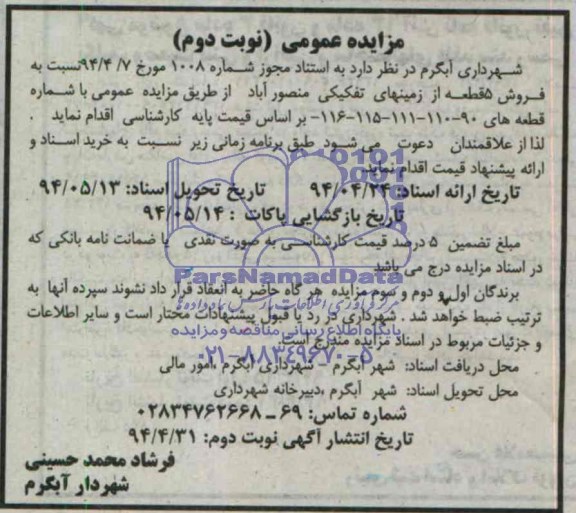 مزایده عمومی (نوبت دوم)
شهرداری آبگرم در نظر دارد به استناد مجوز شماره ۱۰۰۸ مورخ ۹۴/۴/۷ نسبت به
فروش ۵قطعه از زمینهای تفکیکی منصور آباد از طریق مزایده عمومی با شماره
قطعه های ۹۰-۱۱۰-۱۱۱-۱۱۵-۱۱۶- بر اساس قیمت پایه کارشناسی اقدام نماید .
لذا از علاقمندان دعوت می شود طبق برنامه زمانی زیر نسبت به خرید اسناد و
ارائه پیشنهاد قیمت اقدام نماید.
تاریخ ارائه اسناد: ۹۴/۰۴/۲۴ تاریخ تحویل اسناد: ۹۴/۰۵/۱۳
تاریخ بازگشایی پاکات : ۹۴/۰۵/۱۴
مبلغ تضمین ۵ درصد قیمت کارشناسی به صورت نقدی یا ضمانت نامه بانکی که
در اسناد مزایده درج می باشد
ParsNamadData
برندگان اول و دوم و سوم مزایده هر گاه حاضر به انعقاد قرار داد نشوند سپرده آنها به
ترتیب ضبط خواهد شد . شهرداری در رد یا قبول پیشنهادات مختار است و سایر اطلاعات
پایگاه اطلاع رسانی مناقصه و مزایده
و جزئیات مربوط در اسناد مزایده مندرج است.
۰۲۱-۸۸۳۴۹۶۷۰-۵
محل دریافت اسناد: شهر آبگرم – شهرداری آبگرم ،امور مالی
محل تحویل اسناد: شهر آبگرم ،دبیرخانه شهرداری
شماره تماس: ۶۹ – ۰۲۸۳۴۷۶۲۶۶۸
تاریخ انتشار آگهی نوبت دوم: ۹۴/۴/۳۱
فرشاد محمد حسینی
شهردار آبگرم